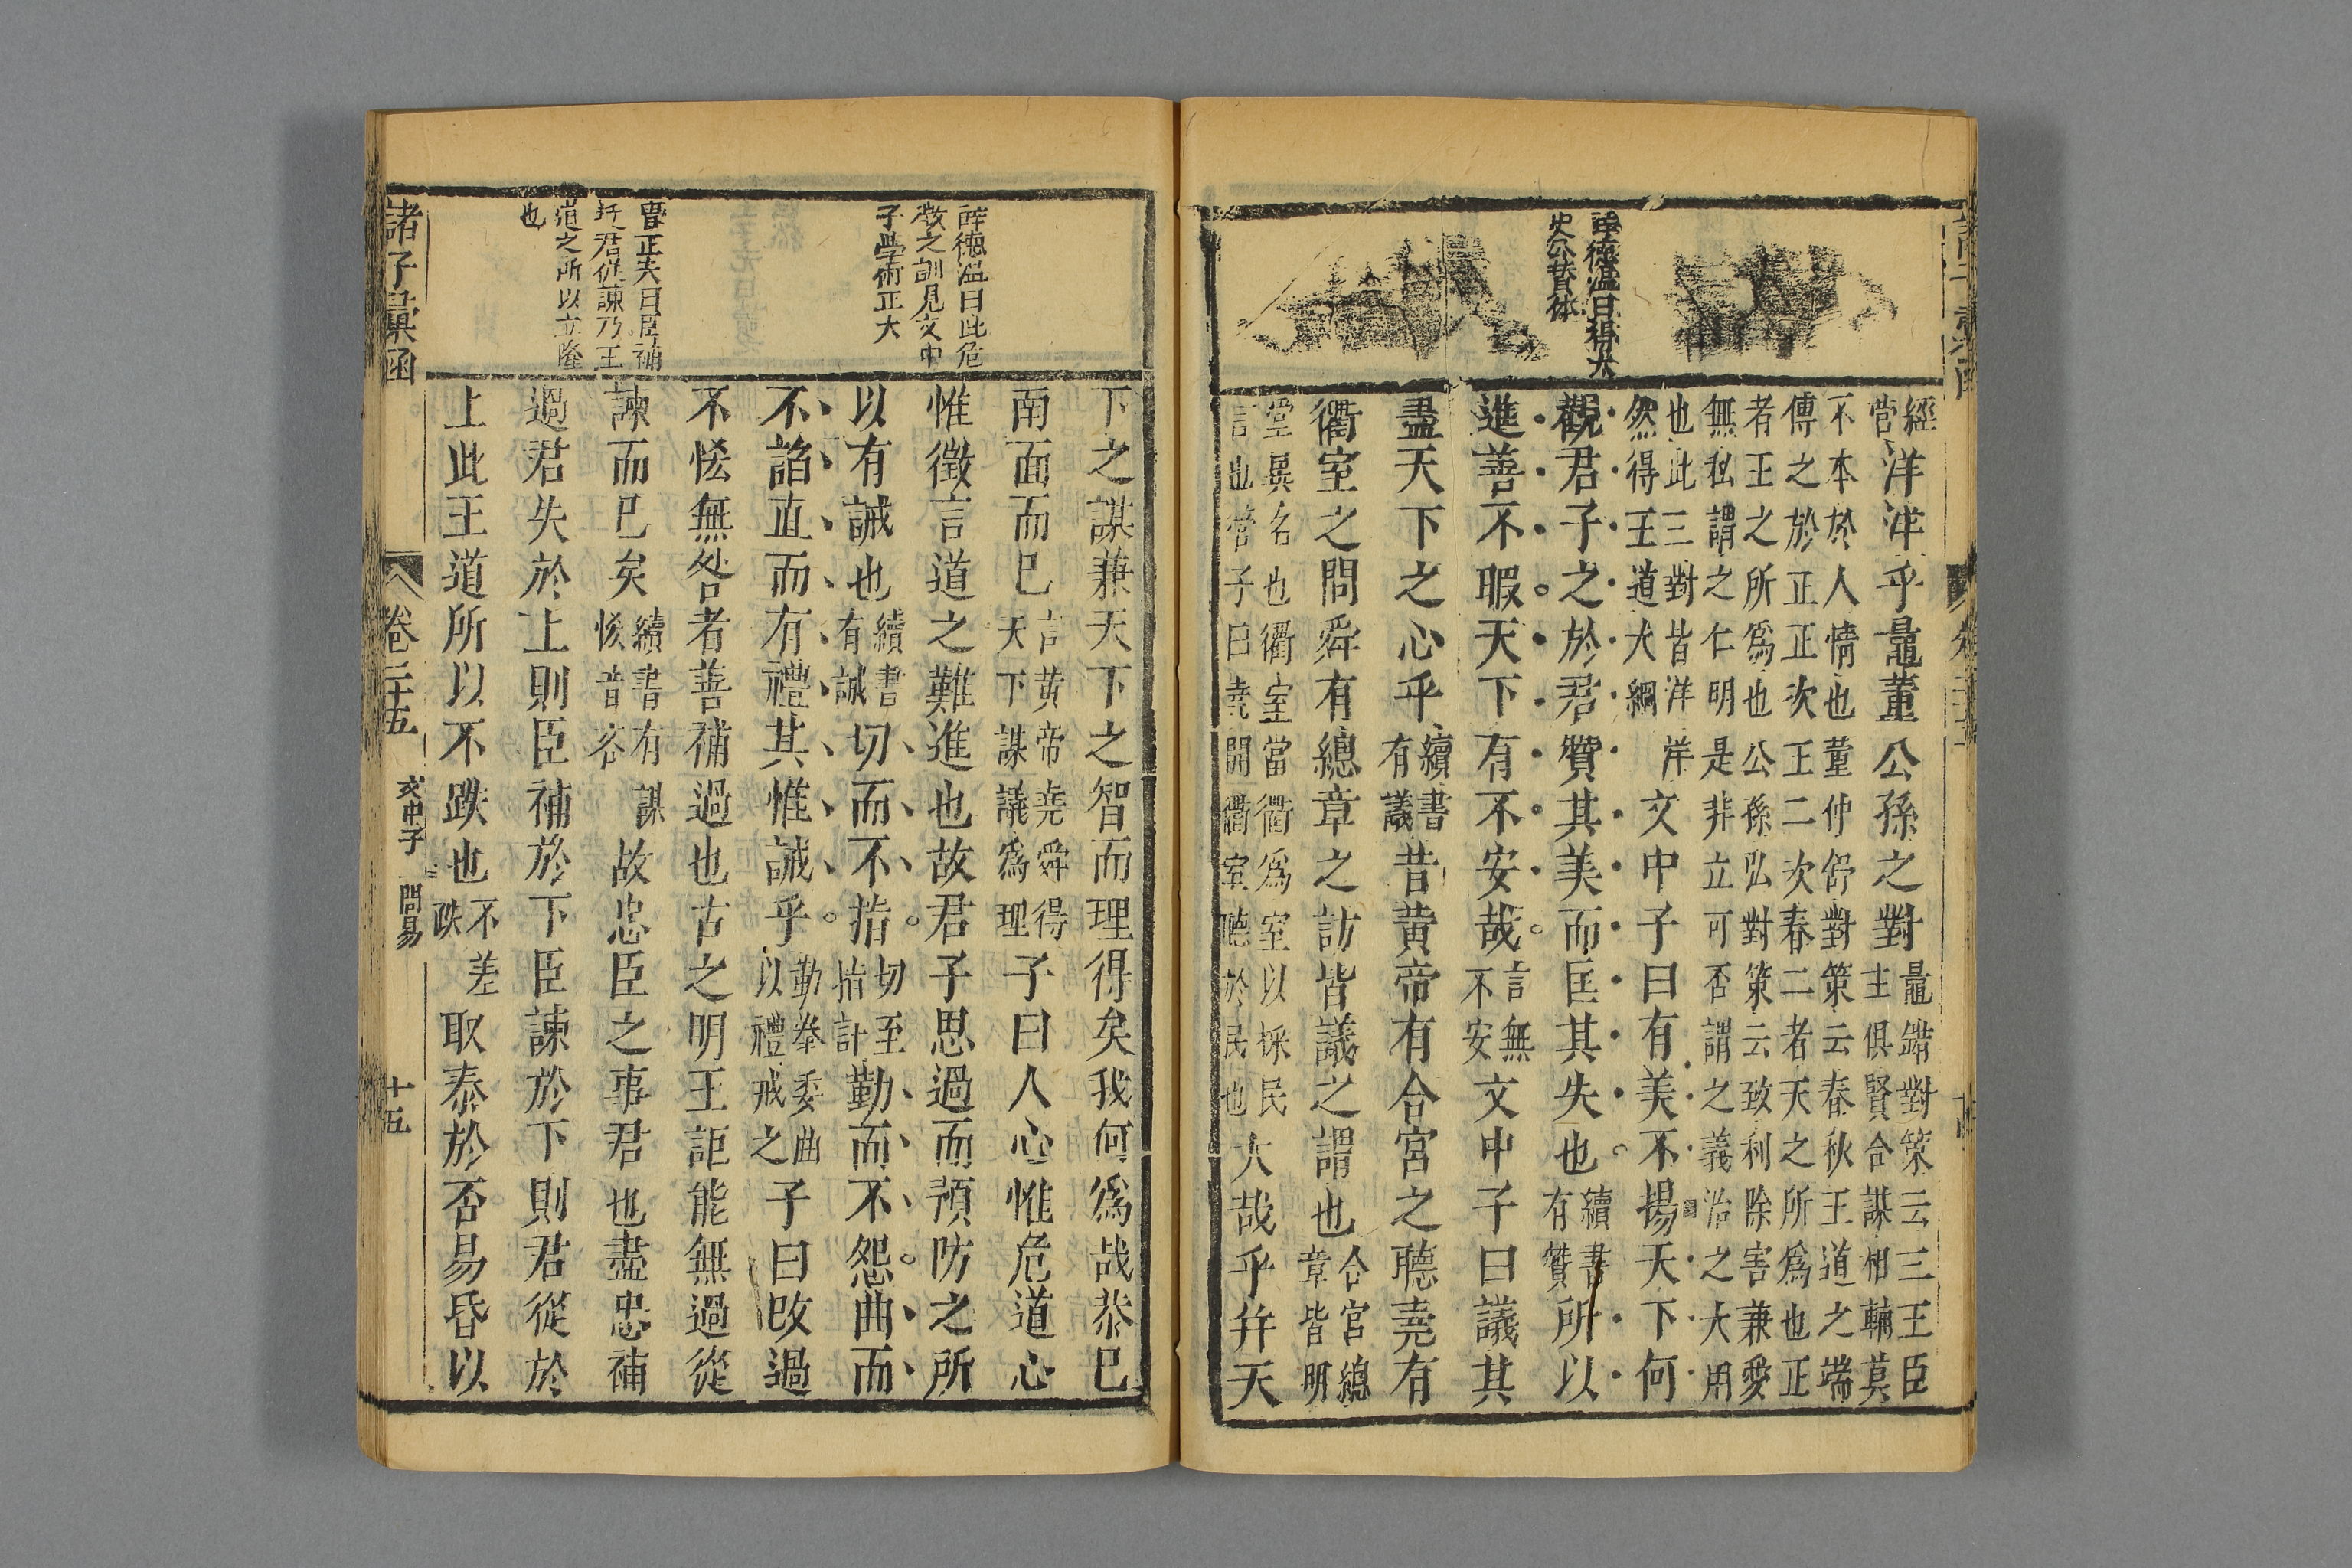 薛德溫曰得太
史公贊体
經
営
洋洋乎鼂董公孫之對
鼂錯對策云三王臣
主俱賢合謀相輔莫
不本於人情也董仲舒對策云春秋王道之端
傳之於正正次王二次春二者天之所爲也正
者王之所爲也公孫弘對策云致利除害兼愛
無私謂之仁明是非立可否謂之義治之大用
也此三對皆洋洋
然得王道大綱
文中子曰有美不揚天下何
觀君子之於君贊其美而匡其失也
續書
有贊
所以
進善不暇天下有不安哉
言無
不安
文中子曰議其
盡天下之心乎
續書
有議
昔黃帝有合宮之聽堯有
衢室之問舜有總章之訪皆議之謂也
合宮總
章皆明
堂異名也衢室當衢爲室以採民
言也管子曰堯開衢室聽於民也
大哉乎并天
薛德溫曰此危
微之訓見文中
子學術正大
曹正夫曰臣補
於君從諫乃王
道之所以立隆
也
下之謀兼天下之智而理得矣我何爲哉恭已
南面而已
言黃帝堯舜得
天下謀議爲理
子曰人心惟危道心
惟微言道之難進也故君子思過而預防之所
以有誡也
續書
有誡
切而不指
切至
指計
勤而不怨曲而
不諂直而有禮其惟誡乎
勤拳委曲
以禮戒之
子曰改過
不恡無咎者善補過也古之明王詎能無過從
諫而已矣
續書有諫
恡音吝
故忠臣之事君也盡忠補
過君失於上則臣補於下臣諫於下則君從於
上此王道所以不跌也
不差
跌
取泰於否易昏以
諸子彙函
卷二十五
文中子
問易
十五